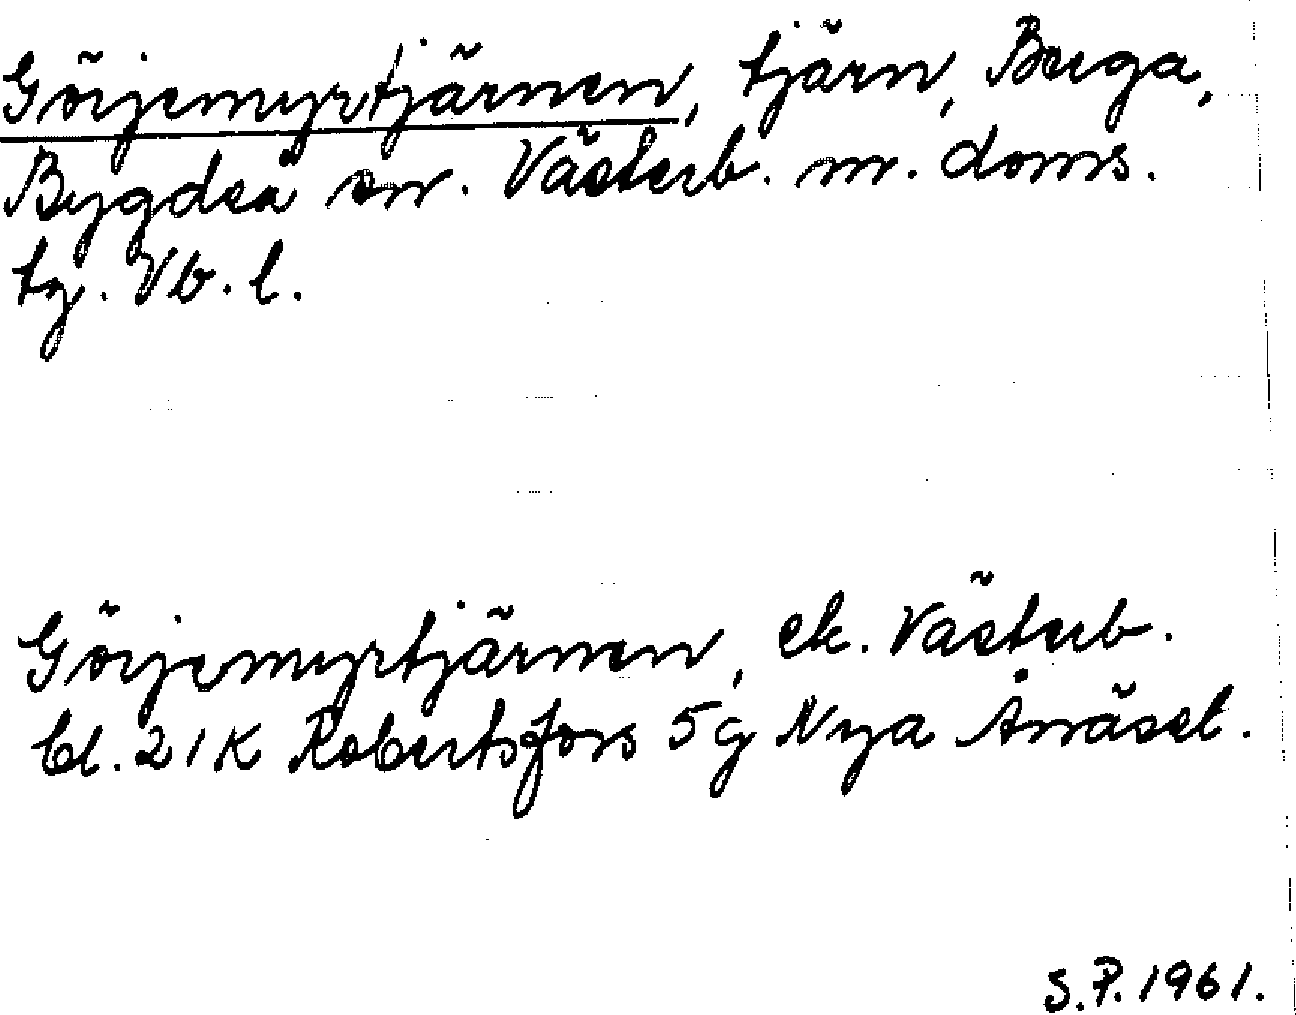 Görjemyrtjärnen, tjärn, Buga,
Bygdeå sn. Västerb. m. doms.
tg. Vb. l.
Görjemyrtjärnen, ek. Västerb.
bl. 21K Robertsfors 5g Nya Ånäset.
S.P. 1961.